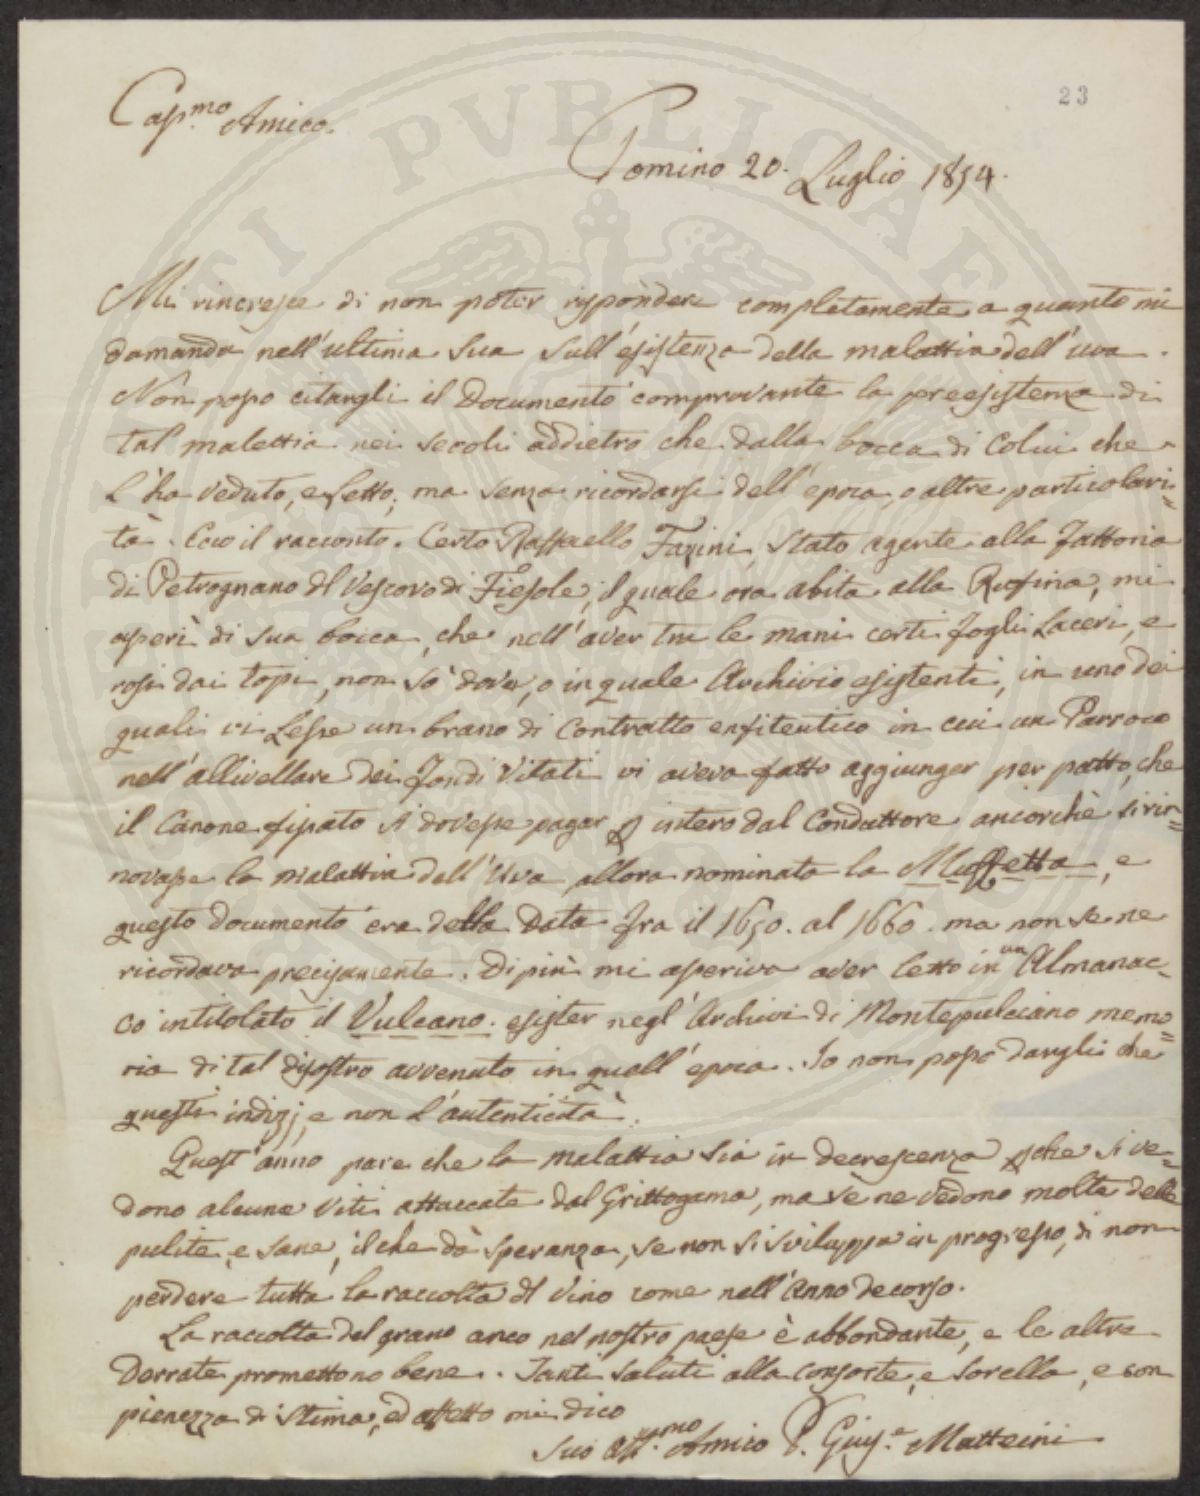 23
Car.mo Amico.
Pomino 20. Luglio 1854.
Mi rincresce di non poter rispondere completamente a quanto mi
domanda nell'ultima Sua Sull'esistenza della malattia dell'uva.
Non posso citargli il Documento comprovante la preesistenza di
tal malattia nei secoli addietro che dalla bocca di Colui che
l'ha veduto, e letto, ma senza ricordarsi dell'epoca, o altre particolari=
tà. Ecco il racconto. Certo Raffaello Fasini Stato agente alla fattoria
di Petrognano del Vescovo di Fiesole, il quale ora abita alla Rufina, mi
asserì di sua bocca, che nell'aver tra le mani certi fogli Laceri, e
rosi dai topi, non so dove, o in quale Archivio esistenti, in uno dei
quali vi Lesse un brano di Contratto enfiteutico in cui un Parroco
nell'allivellare dei fondi Vitati vi aveva fatto aggiunger per patto, che
il Canone fissato si dovesse pagar intero dal Conduttore ancorchè si rin=
novasse la malattia dell'Uva allora nominata la Muffetta, e
questo documento era della Data fra il 1650. al 1660. ma non se ne
ricordava precisamente. Di più mi asseriva aver letto in un Almanac=
co intitolato il Vulcano. esister negl'Archivi di Montepulciano memo=
ria di tal disastro avvenuto in quell'epoca. Io non posso dargli che
questi indizj, e non l'autenticità.
Quest'anno pare che la malattia sia in decrescenza che si ve=
dono alcune Viti attaccate dal Grittogama, ma se ne vedono molte delle
pulite, e sane, il che dà speranza, se non si sviluppa in progresso, di non
perdere tutta la raccolta del Vino come nell'Anno decorso.
La raccolta del grano anco nel nostro paese è abbondante, e le altre
Derrate promettono bene. Tanti saluti alla consorte, e sorella, e con
pienezza di Stima, ed affetto mi dico
Suo Aff.mo Amico P. Gius.e Matteini